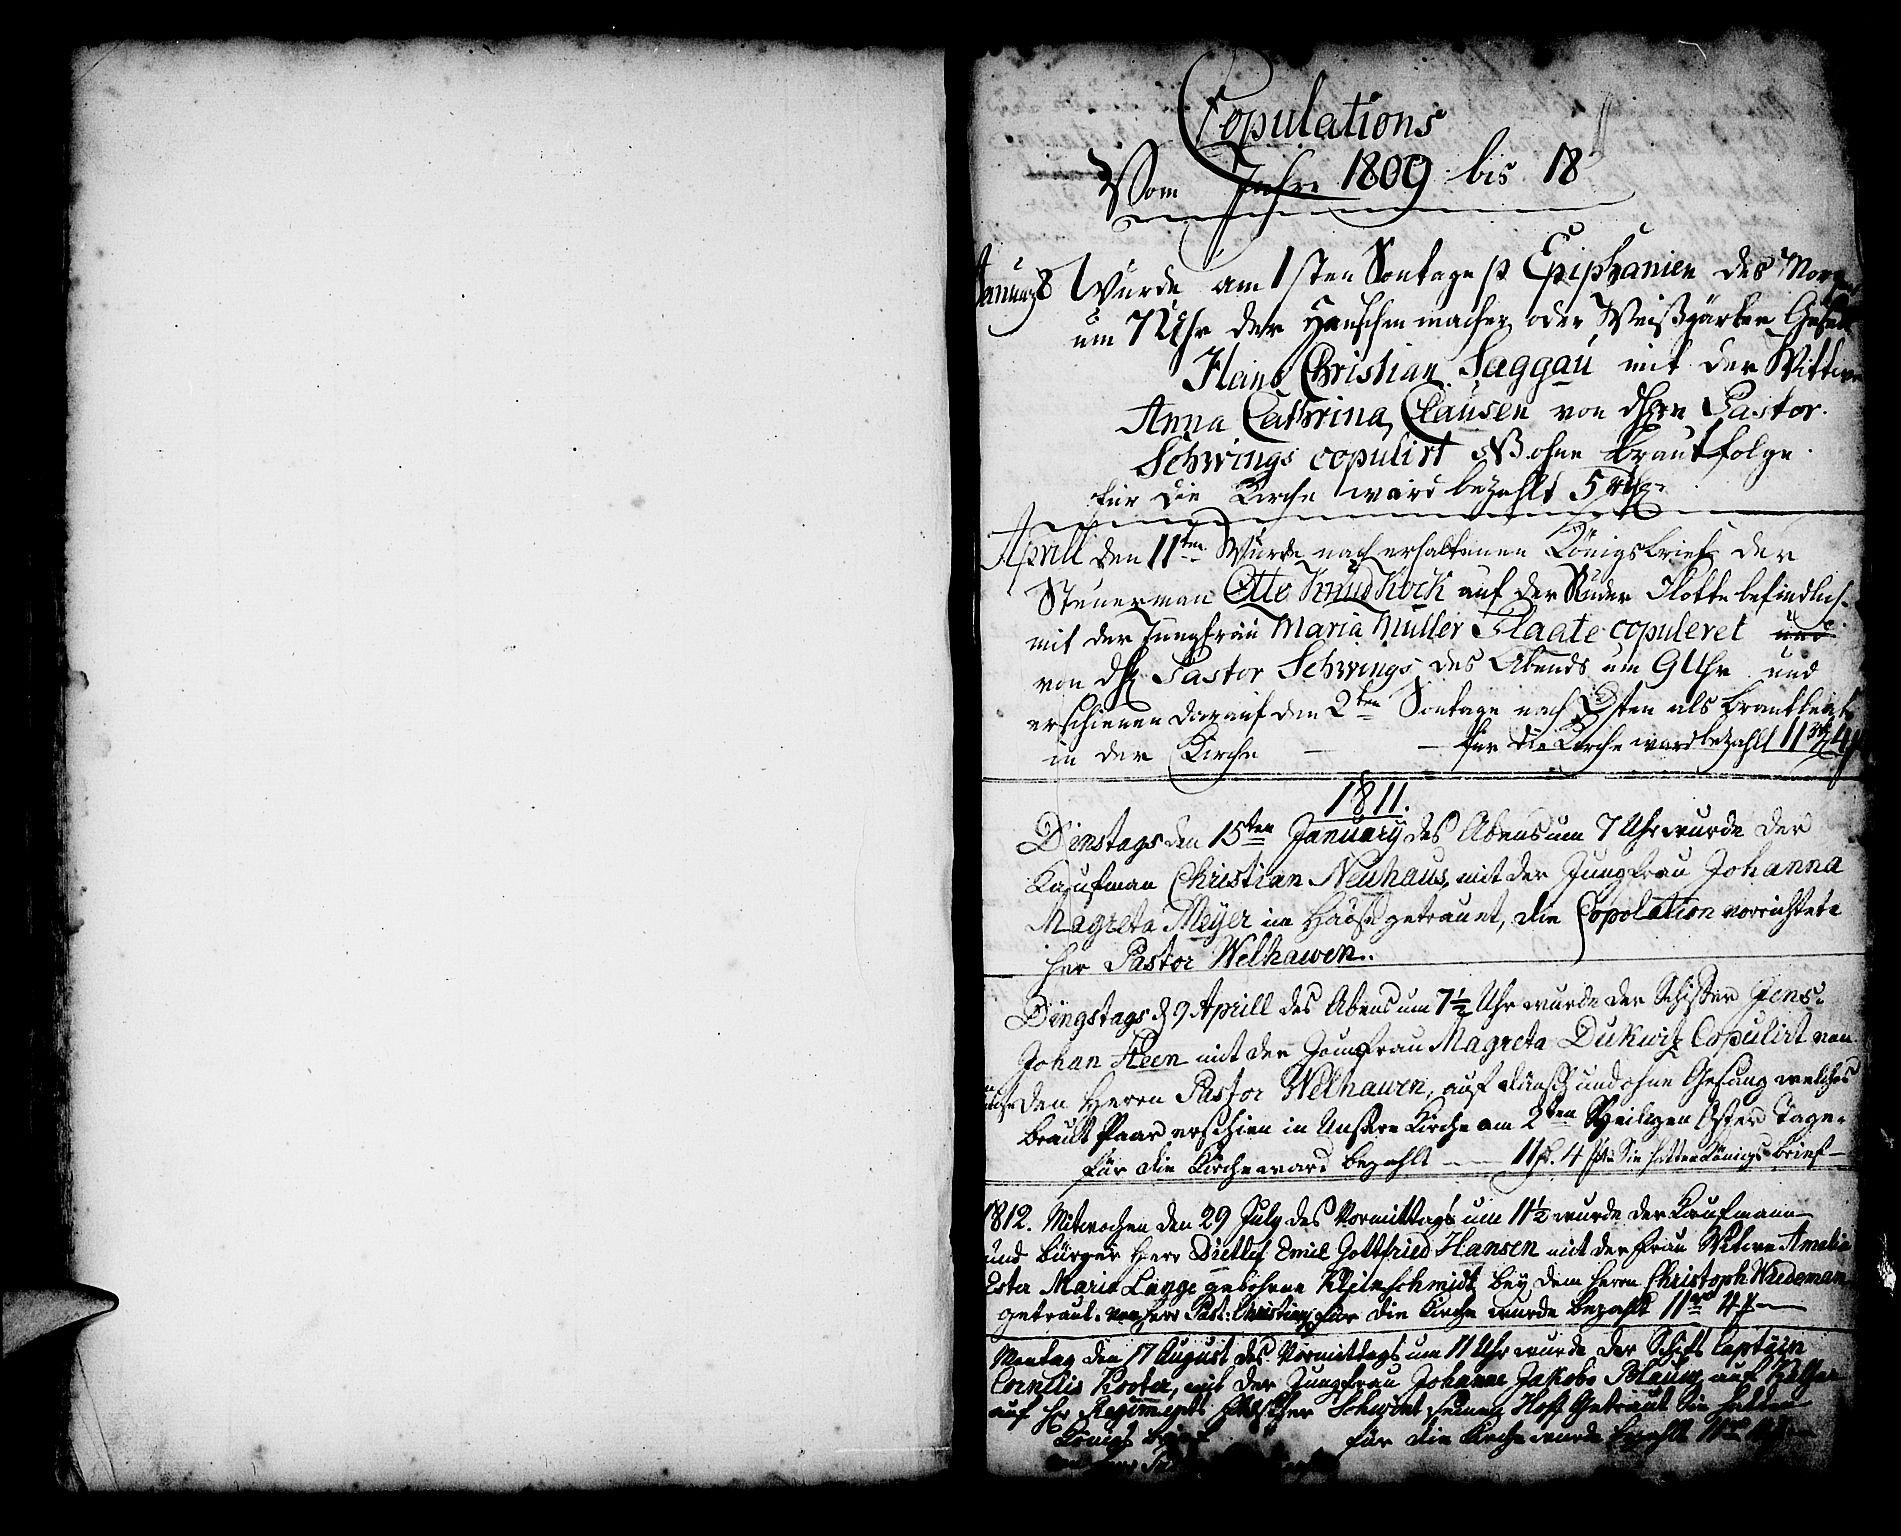 Copulations
Vom Jahre 1809 bis 18
January 8 Wurde am 1sten Sontage p Epiphanien des Morgens
um 7 Uhr der Hanschenmacher oder Weißgärber Gesell
Hans Christian Saggau mit der Wittwe
Anna Cathrina Clausen von Pastor
Schwings copulirt ohne Brautfolge.
für die Kirche ward bezahlt 5
Aprill den 11ten Wurde nach erhaltenen Königsbrief der
Steuerman Otto Knud Kock auf der Ruder Flotte befindlich
mit der Jungfrau Maria Muller Plaate copuleret und
von Pastor Schwings des Abends um 9 Uhr und
erschienen darauf den 2ten Sontage nach Osten als Brautleute
in der Kirche — — für die Kirche ward bezahlt 11 4
1811.
Dinstags den 15ten January des Abens um 7 Uhr wurde der
Kaufman Christian Neuhaus, mit der Jungfrau Johanna
Magreta Meÿer im Hause getrauet, die Copolation verrichtete
Her Pastor Welhawen.
Dingstags d 9 Aprill des Abens um 7½ Uhr wurde der Schiffer Jens
Johan Steen mit der Jomfrau Magreta Dukwitz Copulirt von
den Herrn Pastor Welhawen, auf dänsch und ohne Gesang welches
Braut Paar erschien in Unsere Kirche am 2ten Heiligen Oster Tage.
für die Kirche ward bezahlt — 11 4 Sie hatten Königs brief —
1812. Mitwochen den 29 July des Vormittags um 11½ wurde der Kaufmann
und Bürger Herr Dietlef Emil Gottfried Hansen mit der Frau Witwe Amelia
Ester Maria Lange gebohrne Kleinschmidt bey dem Herrn Christoph Wiedeman
getraut. von Herr Past: für die Kirche wurde bezahlt 11 4 —
Montag den 17 August des Vormittags um 11 Uhr wurde der Schifs Captain
Cornelis Kooter, mit der Jungfrau Johanne Jakobe Blauw, auf
auf Regiments Schwont seinen Hoff Getraut Sie hatten
Königs Brief für die Kirche wurde bezahlt 11